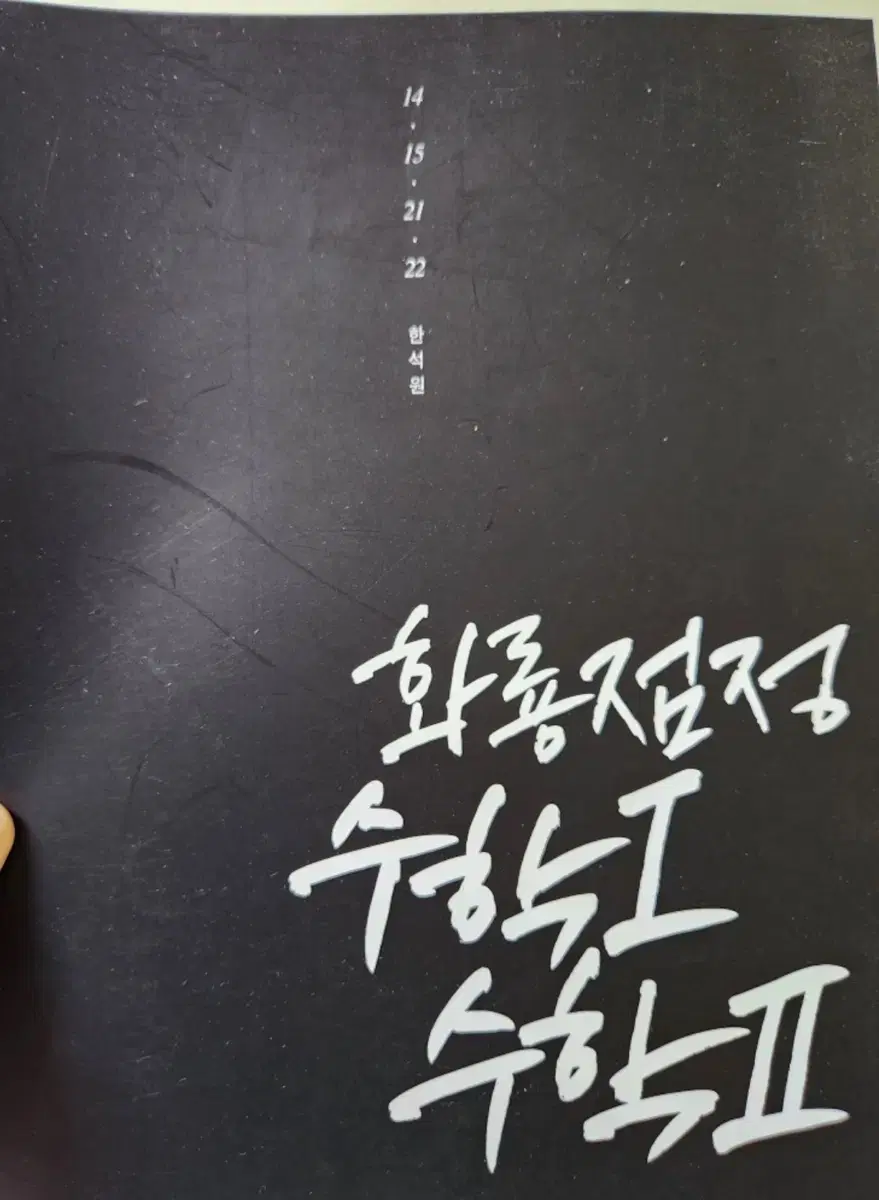 14 · 15 · 21 · 22 한석원
화룡점정
수학 I
수학 II